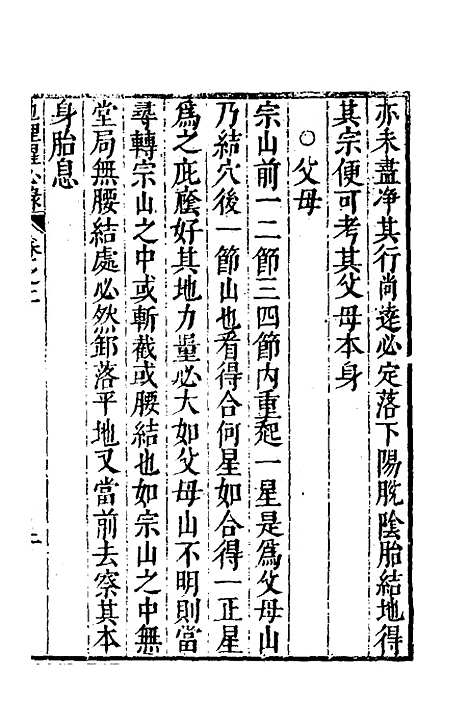 亦未盡净其行尚遠必定落下陽脫陰胎結地得
其宗便可考其父母本身
○父母
宗山前一二節三四節內重起一星是爲父母山
乃結穴後一節山也看得合何星如合得一正星
爲之庇廕好其地力量必大如父母山不明則當
尋轉宗山之中或斬截或腰結也如宗山之中無
堂局無腰結處必然卸落平地又當前去察其本
身胎息